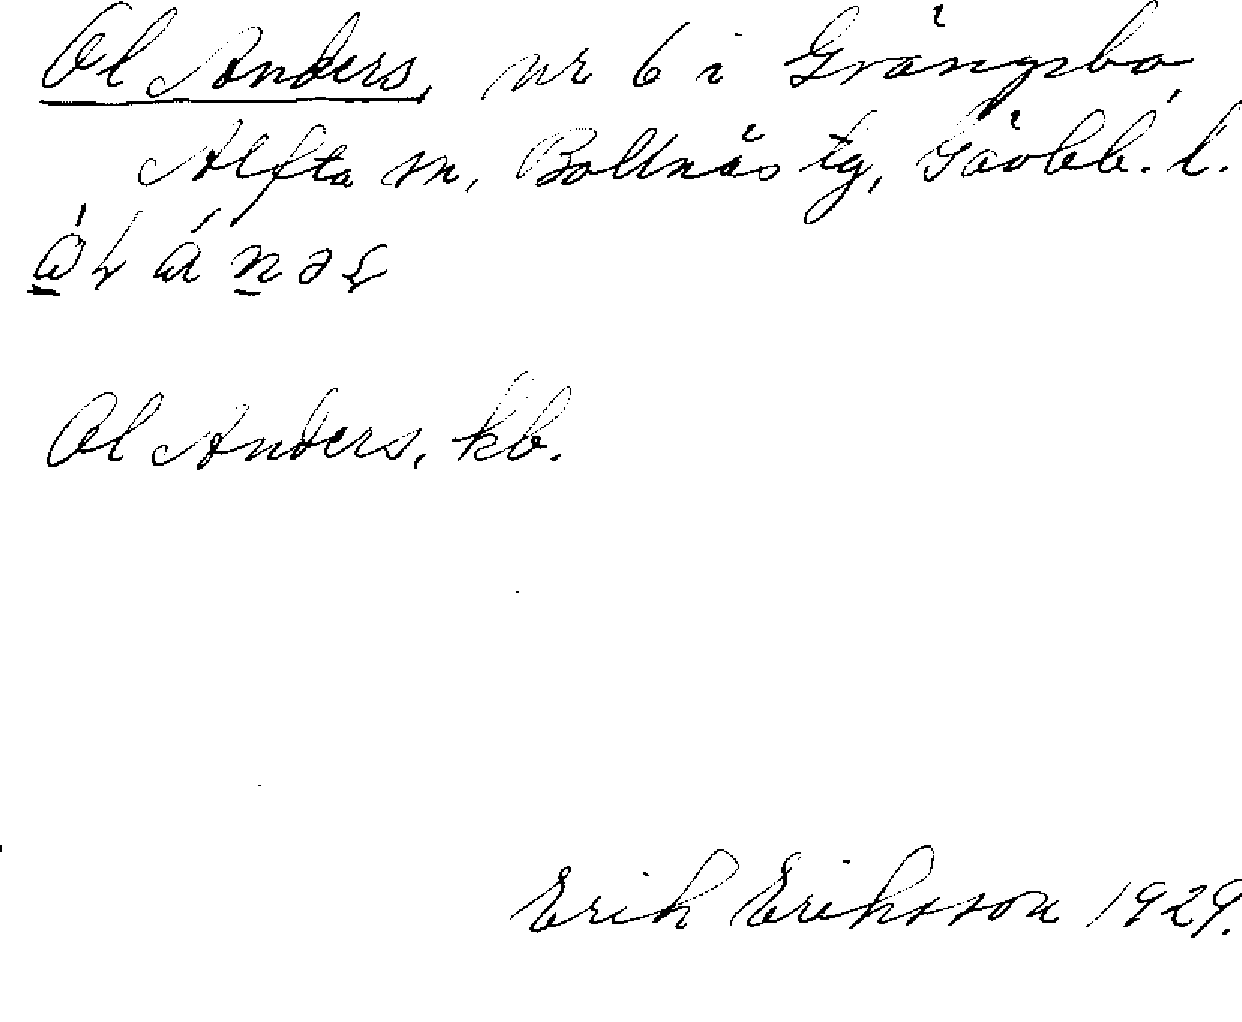 Ol Anders, nr 6 i Grängsbo,
Alfta sn, Bollnäs tg, Gävleb. l.
Ol Anders, kb.
Erik Eriksson 1929.